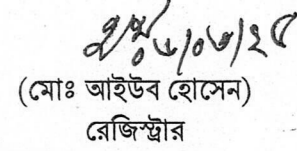 ০৬/০৩/২৫
(মোঃ আইউব হোসেন)
রেজিস্ট্রার